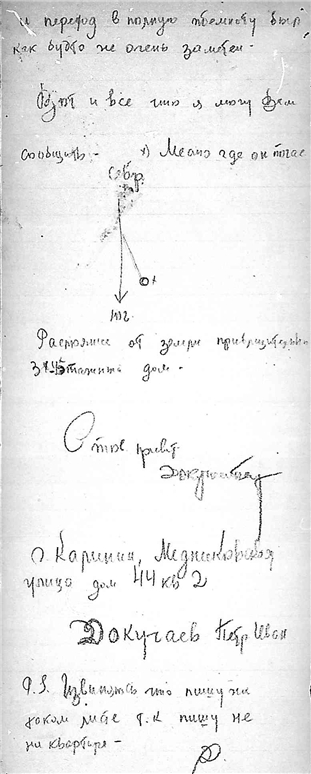 и переход в полную темноту был
как будто не очень заметен.
Вот и все что я могу Вам
сообщить. х) Место где он погас
Север.
х
Юг.
Расстояние от земли приблизительно
этажный дом.
С тов. приветом
г. Калинин, Медниковская
улица дом 44 кв 2
Докучаев Петр Иван
P.S. Извиняюсь что пишу на
таком листе т.к пишу не
на квартире.